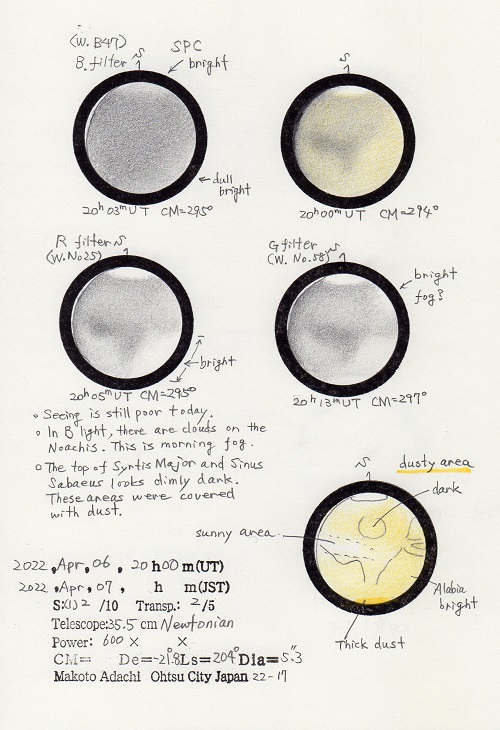 (W.B47)
B.filter
S
SPC
bright
dull
bright
20h03mUT CM=295°
S
20h00mUT CM=294°
R filter
(W.No25)
S
bright
20h05mUT CM=295°
G filter
(W.No.58)
S
bright
fog?
20h13mUT CM=297°
○ Seeing is still poor today.
○ In B light, there are clouds on the
Noachis. This is morning fog.
○ The top of Syrtis Major and Sinus
Sabaeus looks dimly dark.
These areas were covered
with dust.
S
dusty area
dark
sunny area
Alabia
bright
Thick dust
2022, Apr, 06, 20h00m(UT)
2022, Apr, 07, h m(JST)
S:(1)2/10 Transp.: 2/5
Telescope:35.5 cm Newtonian
Power: 600× ×
CM= De=-21.8 Ls=204° Dia=5.″3
Makoto Adachi Ohtsu City Japan 22-17